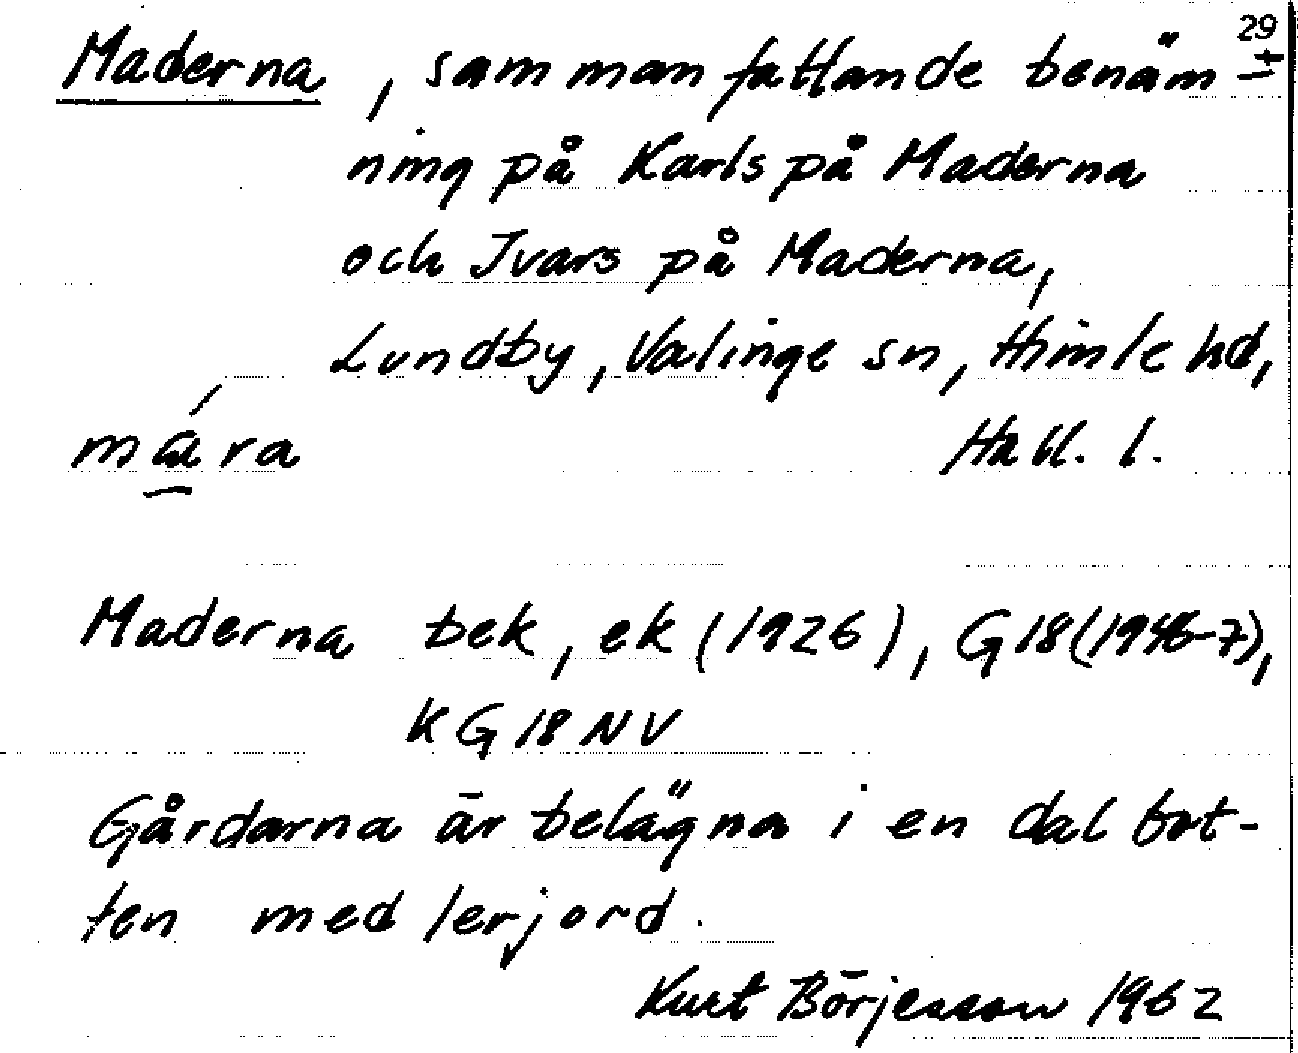 29
Maderna, sammanfattande benäm-
ning på Karls på Maderna
och Ivars på Maderna,
Lundby, Valinge sn, Himle hd,
Hall. l.
Maderna bek, ek (1926), G18(1946-7),
KG18NV
Gårdarna är belägna i en dalbot-
ten med lerjord.
Kurt Börjesson 1962